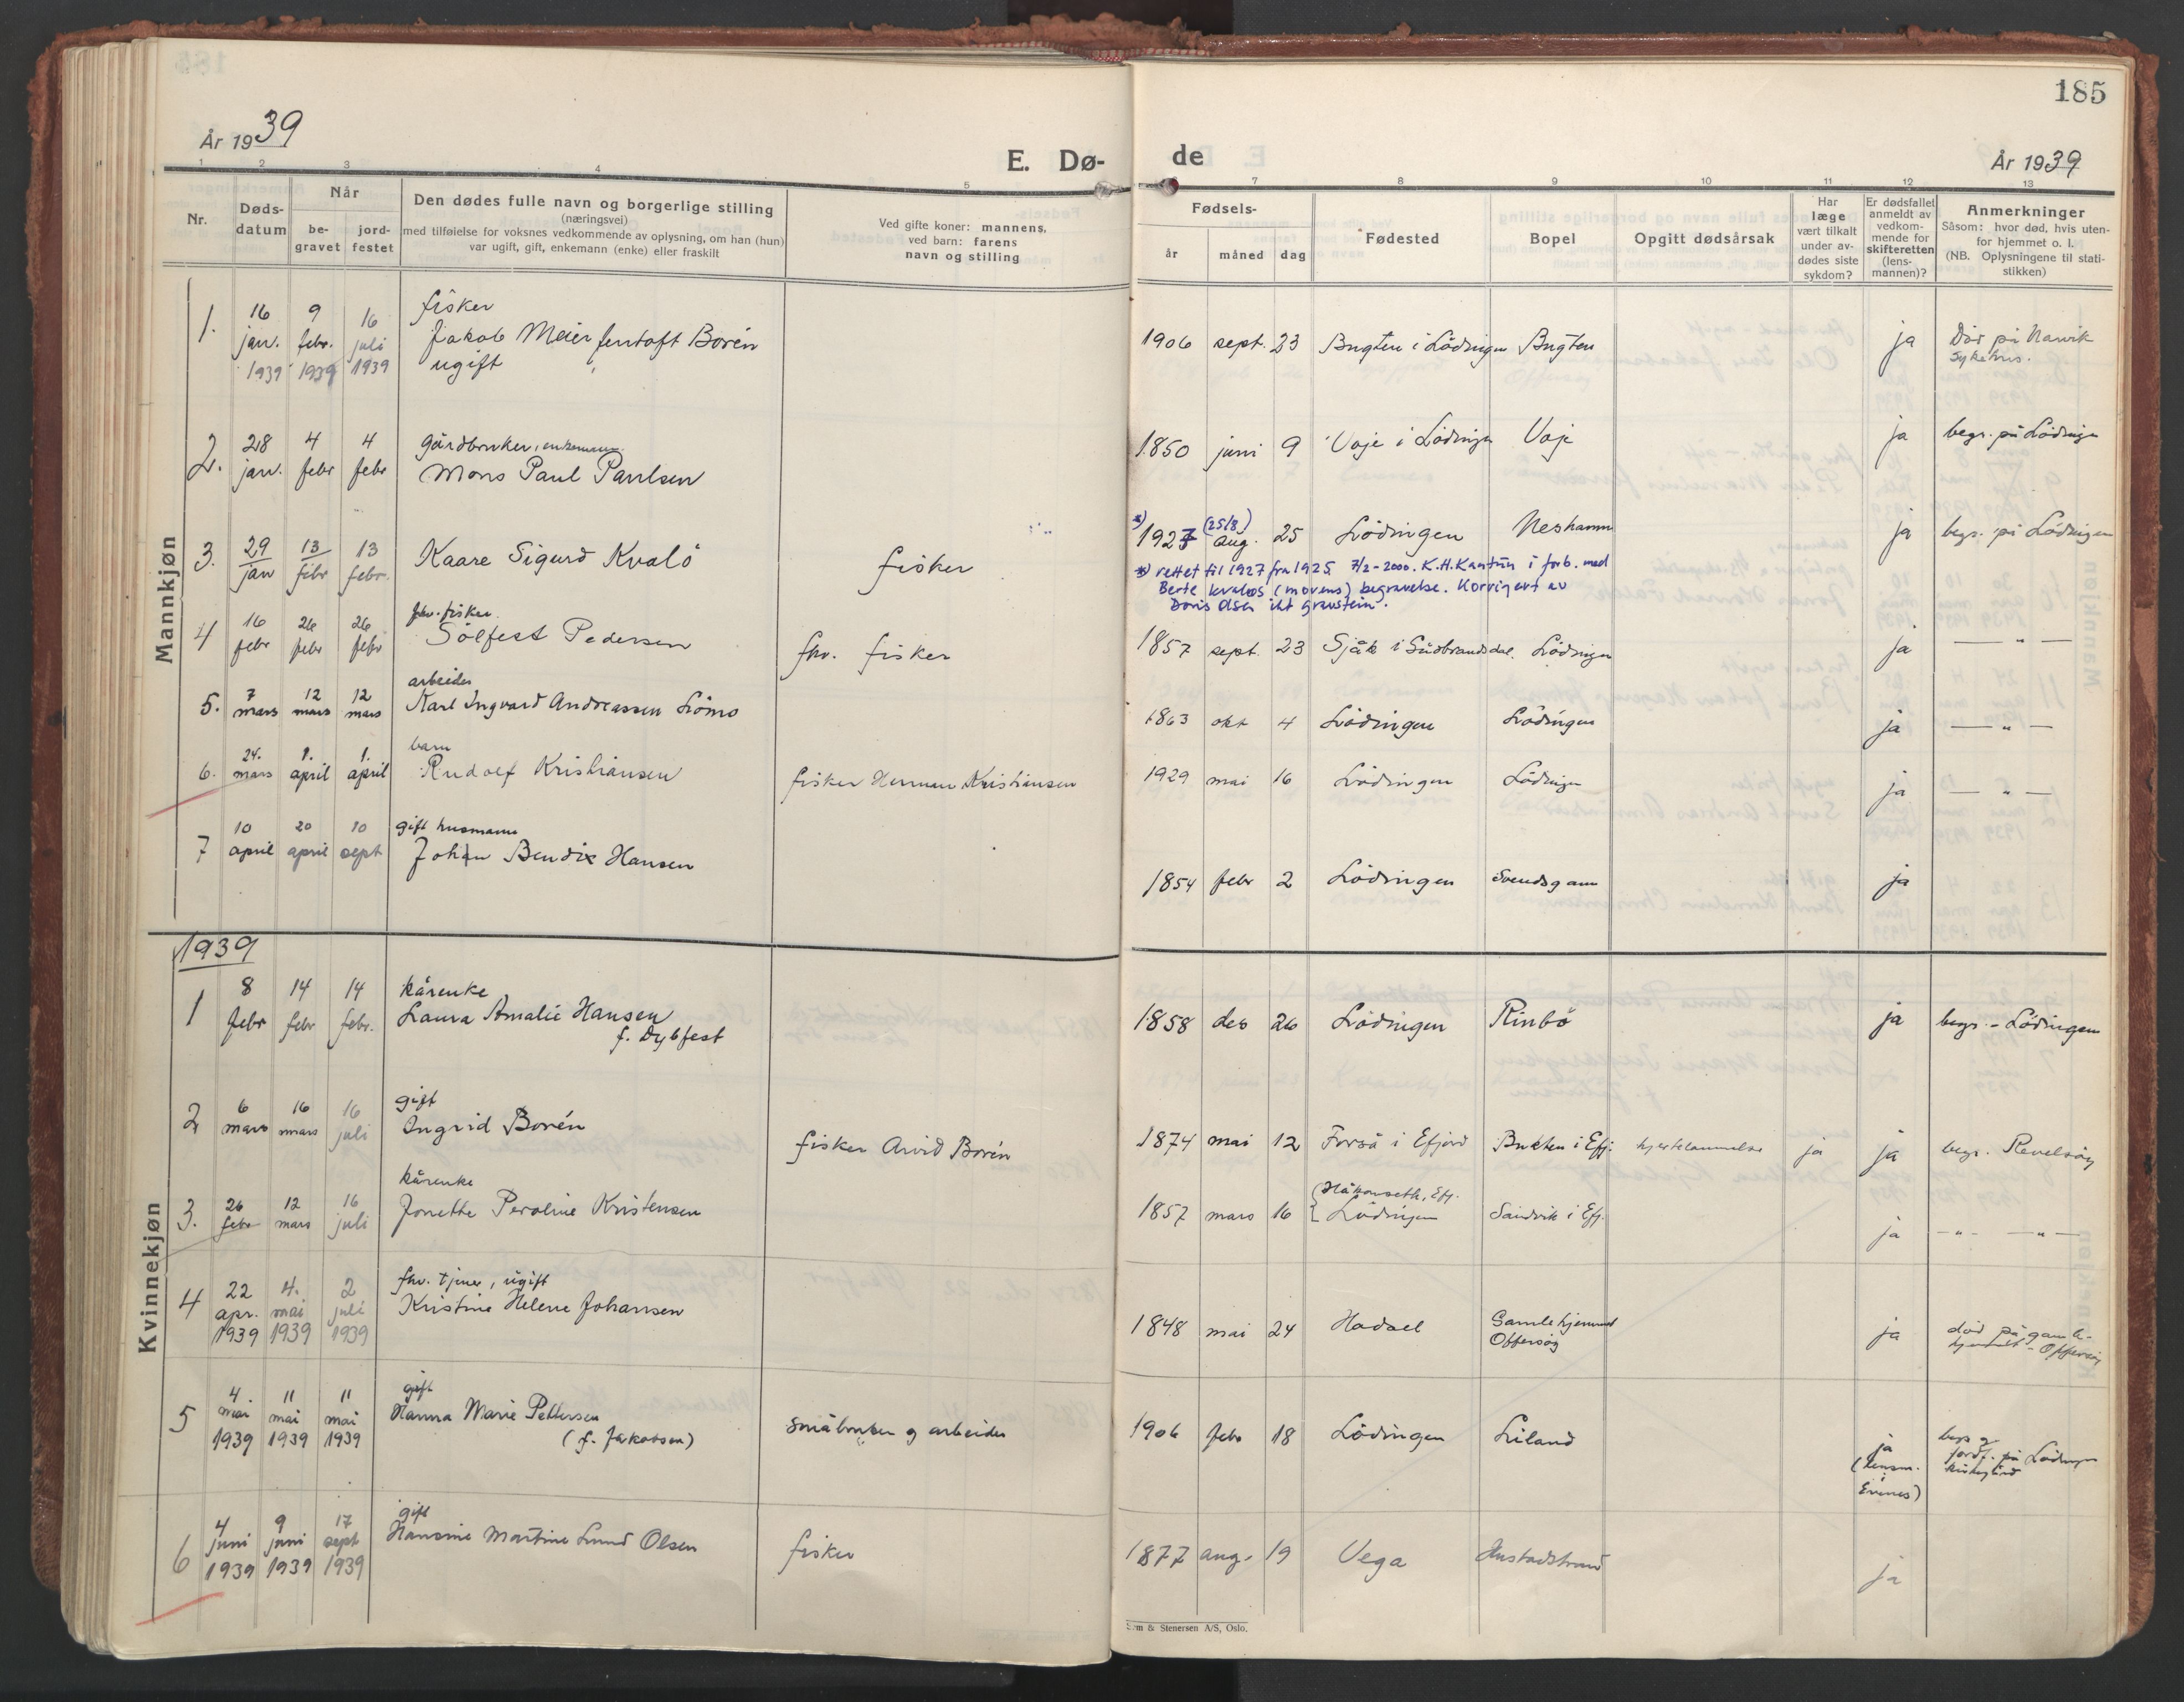 185
År 1939
E. Dø-
de
År 1939
1 2 3 4 5
7 8 9 10 11 12 13
Nr.
Døds-
datum
Når
be-
gravet
jord-
festet
Den dødes fulle navn og borgerlige stilling
(næringsvei)
med tilføielse for voksnes vedkommende av oplysning, om han (hun)
var ugift, gift, enkemann (enke) eller fraskilt
Ved gifte koner: mannens,
ved barn: farens
navn og stilling
Fødsels-
år måned dag
Fødested
Bopel
Opgitt dødsårsak
Har
læge
vært tilkalt
under av-
dødes siste
sykdom?
Er dødsfallet
anmeldt av
vedkom-
mende for
skifteretten
(lens-
mannen)?
Anmerkninger
Såsom: hvor død, hvis uten-
for hjemmet o. l.
(NB. Oplysningene til stati-
stikken)
Mannkjøn
fisker
1. 16 jan. 1939 9 febr. 1939 16 juli 1939 Jakob Meier Borén
ugift
1906 sept. 23 Bugten i Lödingen Bugten ja Död på Narvik
Sykehus.
gårdbruker, enkemann.
2. 28 jan. 4 febr 4 febr Mons Paul Paulsen
1850 juni 9 Voje i Lödingen Voje ja begr. på Lödingen
3. 29 jan 13 febr 13 febr. Kaare Sigurd Kvalö fisker
*) 1927 (25/8) aug. 25 Lödingen Neshamn ja begr. på Lödingen
*) rettet til 1927 fra 1925 7/2-2000. K.H. i forb. med
Berte kvaløs (morens) begravelse. Korrigert av
Doris Olsen iht gravstein.
fhv. fisker.
4 16 febr 26 febr 26 febr Sölfest Pedersen fhv. fisker
1857 sept. 23 Sjåk i Gudbrandsdal. Lödingen ja — " —
arbeider
5. 7 mars 12 mars 12 mars Karl Ingvard Andreassen Lömo
1863 okt 4 Lödingen Lödingen ja — " —
barn
6. 24. mars 1. april 1. april Rudolf Kristiansen fisker Herman Kristiansen
1929 mai 16 Lödingen Lödingen ja — " —
gift husmann
7 10 april 20 april 10 sept Johan Bendix Hansen
1854 febr 2 Lödingen Svendsgam ja
1939
Kvinnekjøn
kårenke
1 8 febr 14 febr 14 febr. Laura Amalie Hansen
f. Dybfest
1858 des 26 Lödingen Rinbö ja begr. - Lödingen
gift
2 6 mars 16 mars 16 juli Ingrid Borén fisker Arvid Borén
1874 mai 12 Forså i Efjord Bukten i Efj. hjertelammelse ja ja begr. Revelsöy
kårenke
3. 26 febr 12 mars 16 juli Jonette Peroline Kristensen
1857 mars 16 Håkonseth, Efj.
Lödingen Sandvik i Efj. ja -"- —"—
fhv. tjener, ugift
4 22 apr. 1939 4. mai 1939 2 juli 1939 Kristine Helene Johansen
1848 mai 24 Hadsel Gamlehjemmet
Offersöy ja död på gamle-
hjemmet - Offersöy
gift
5 4 mai 1939 11 mai 1939 11 mai 1939 Hanna Marie Pettersen
(f. Jakobsen)
småbruker og arbeider
1906 febr 18 Lödingen Liland ja
(lensm.
i
Evenes)
begr. og
jordf. på Lödingen
kirkegård
gift
6 4 juni 1939 9 juni 1939 17 sept 1939 Hansine Martine Lund Olsen fisker
1877 aug. 19 Vega Hustadstrand ja
Sem & Stenersen A/S, Oslo.